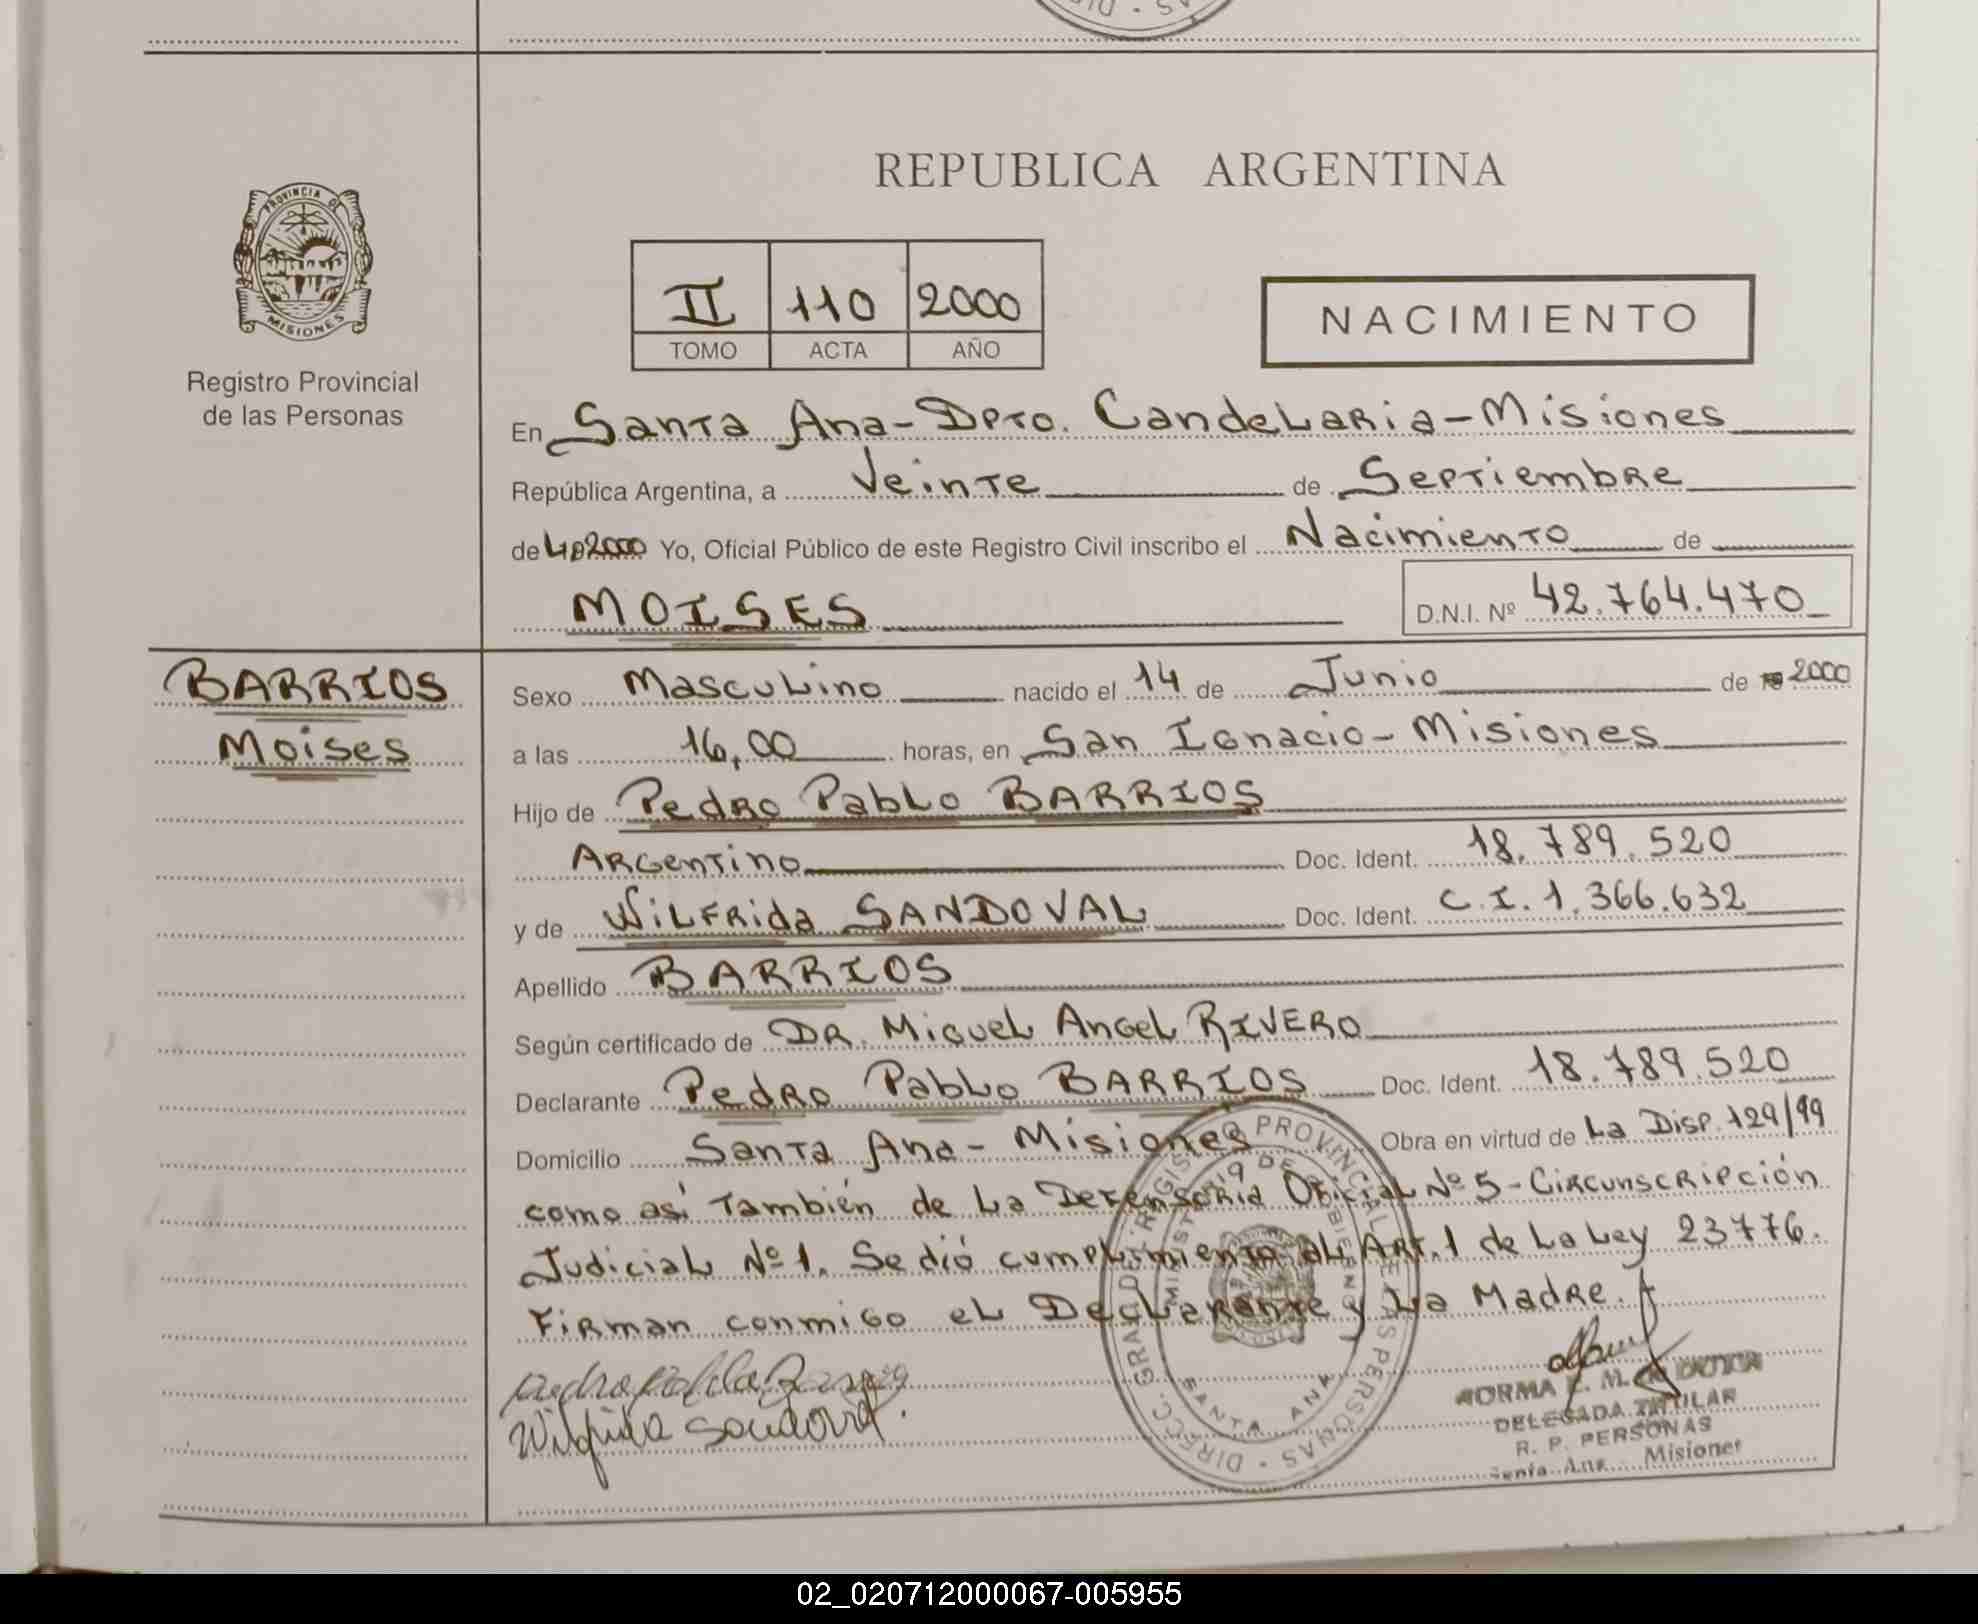 REPUBLICA ARGENTINA
PROVINCIA DE
MISIONES
Registro Provincial
de las Personas
II 110 2000
TOMO ACTA AÑO
NACIMIENTO
En Santa Ana - Dpto. Candelaria - Misiones
República Argentina, a Veinte de Septiembre
de 2000 Yo, Oficial Público de este Registro Civil inscribo el Nacimiento de
MOISES D.N.I. Nº 42.764.470
BARRIOS
Moises
Sexo Masculino nacido el 14 de Junio de 2000
a las 16,00 horas, en San Ignacio - Misiones
Hijo de Pedro Pablo BARRIOS
Argentino Doc. Ident. 18.789.520
y de Wilfrida SANDOVAL Doc. Ident. C.I. 1.366.632
Apellido BARRIOS
Según certificado de DR. Miguel Angel RIVERO
Declarante Pedro Pablo BARRIOS Doc. Ident. 18.789.520
Domicilio Santa Ana - Misiones Obra en virtud de La Disp. 129/99
como así También de La Defensoria Oficial Nº 5 - Circunscripción
Judicial Nº 1. Se dió cumplimiento al Art. 1 de La Ley 23776.
Firman conmigo el Declarante y La Madre.
DIRECC. GRAL. DEL REGISTRO PROVINCIAL DE LAS PERSONAS
MINISTERIO DE GOBIERNO
SANTA ANA
Wilfrida Sandoval.
NORMA
DELEGADA TITULAR
R. P. PERSONAS
Santa Ana Misiones
02_020712000067-005955